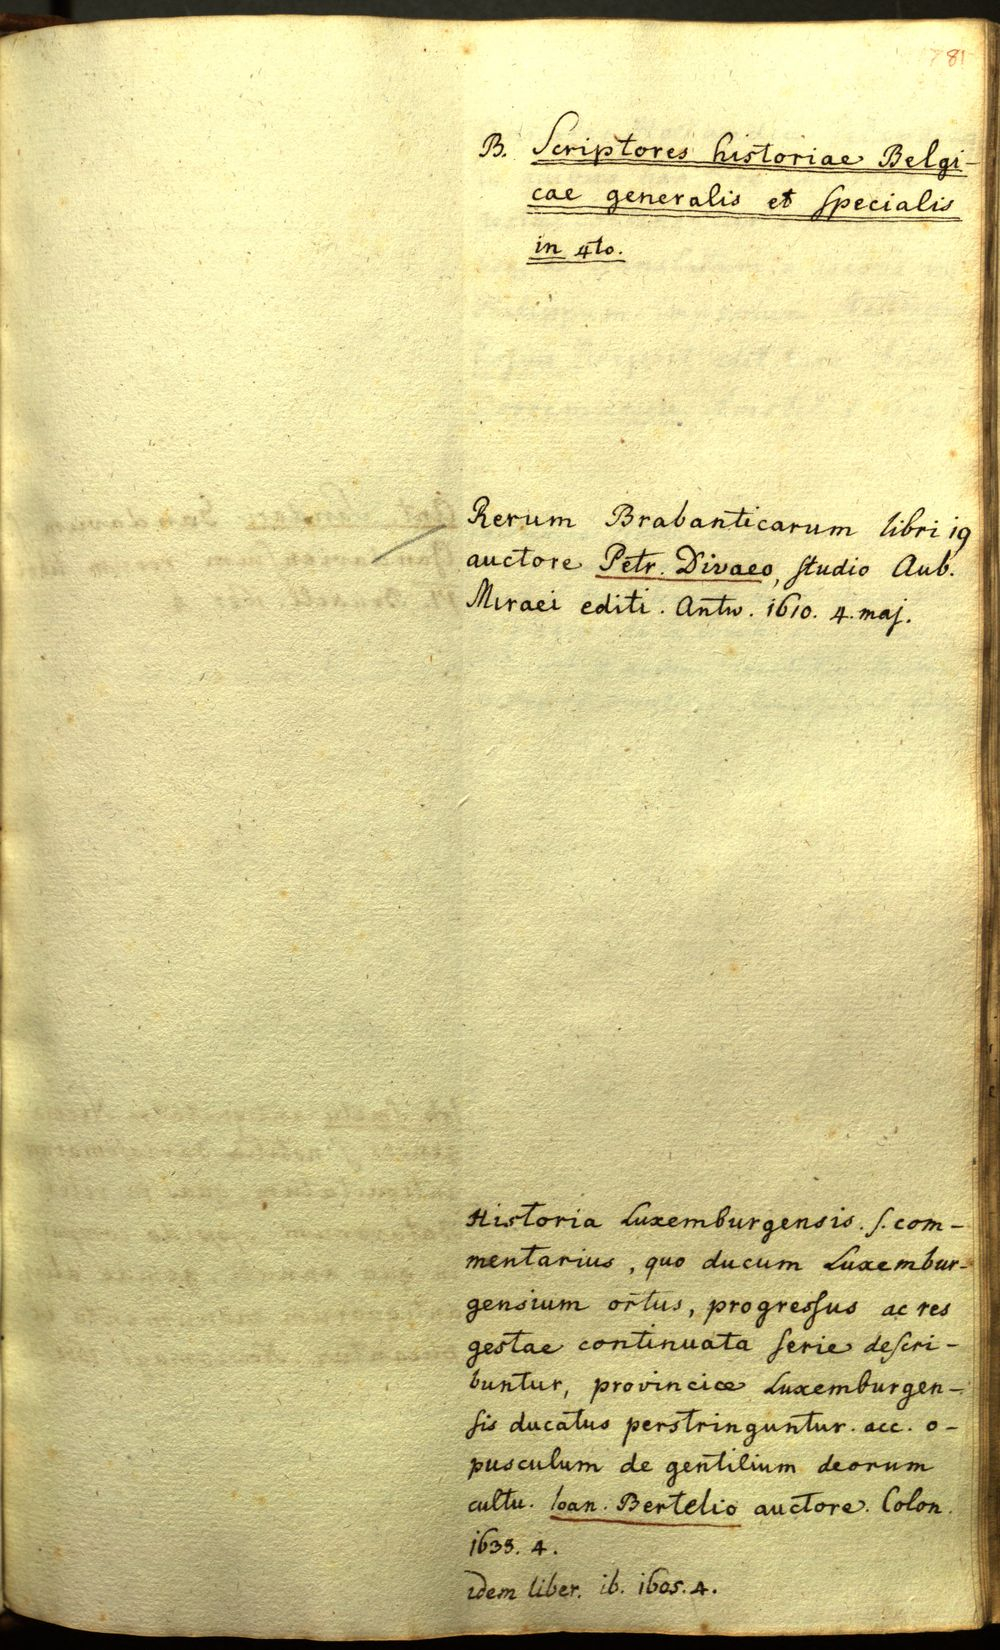 81
B. Scriptores historiae Belgi-
cae generalis et specialis
in 4to.
Rerum Brabanticarum libri 19
auctore Petr. Divaeo, studio Aub.
Miraei editi. Antw. 1610. 4. maj.
Historia Luxemburgensis. s. com-
mentarius, quo ducum Luxembur-
gensium ortus, progressus ac res
gestae continuata serie descri-
buntur, provinciae Luxemburgen-
sis ducatus perstringuntur. acc. o-
pusculum de gentilium deorum
cultu. Ioan. Bertelio auctore. Colon.
1635. 4.
idem liber. ib. 1605. 4.